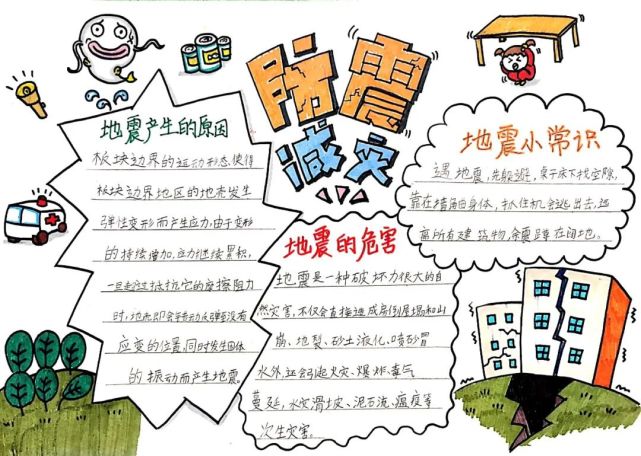 防震
减灾
地震产生的原因
板块边界的运动形态,使得
板块边界地区的地壳发生
弹性变形而产生应力,由于变形
的持续增加,应力继续累积,
一旦超过抵抗它的摩擦阻力
时,地壳即会
没有
应变的位置,同时发生固体
的振动而产生地震。
地震的危害
地震是一种破坏力很大的自
然灾害,不仅会直接造成房倒屋塌和山
崩、地裂、砂土液化、喷砂冒
水外,还会引起火灾、爆炸、毒气
蔓延,水灾滑坡、泥石流、瘟疫等
次生灾害。
地震小常识
遇地震,先躲避,桌子床下找空隙,
靠在墙角
身体,抓住机会逃出去,远
离所有建筑物,余震蹲在
地。